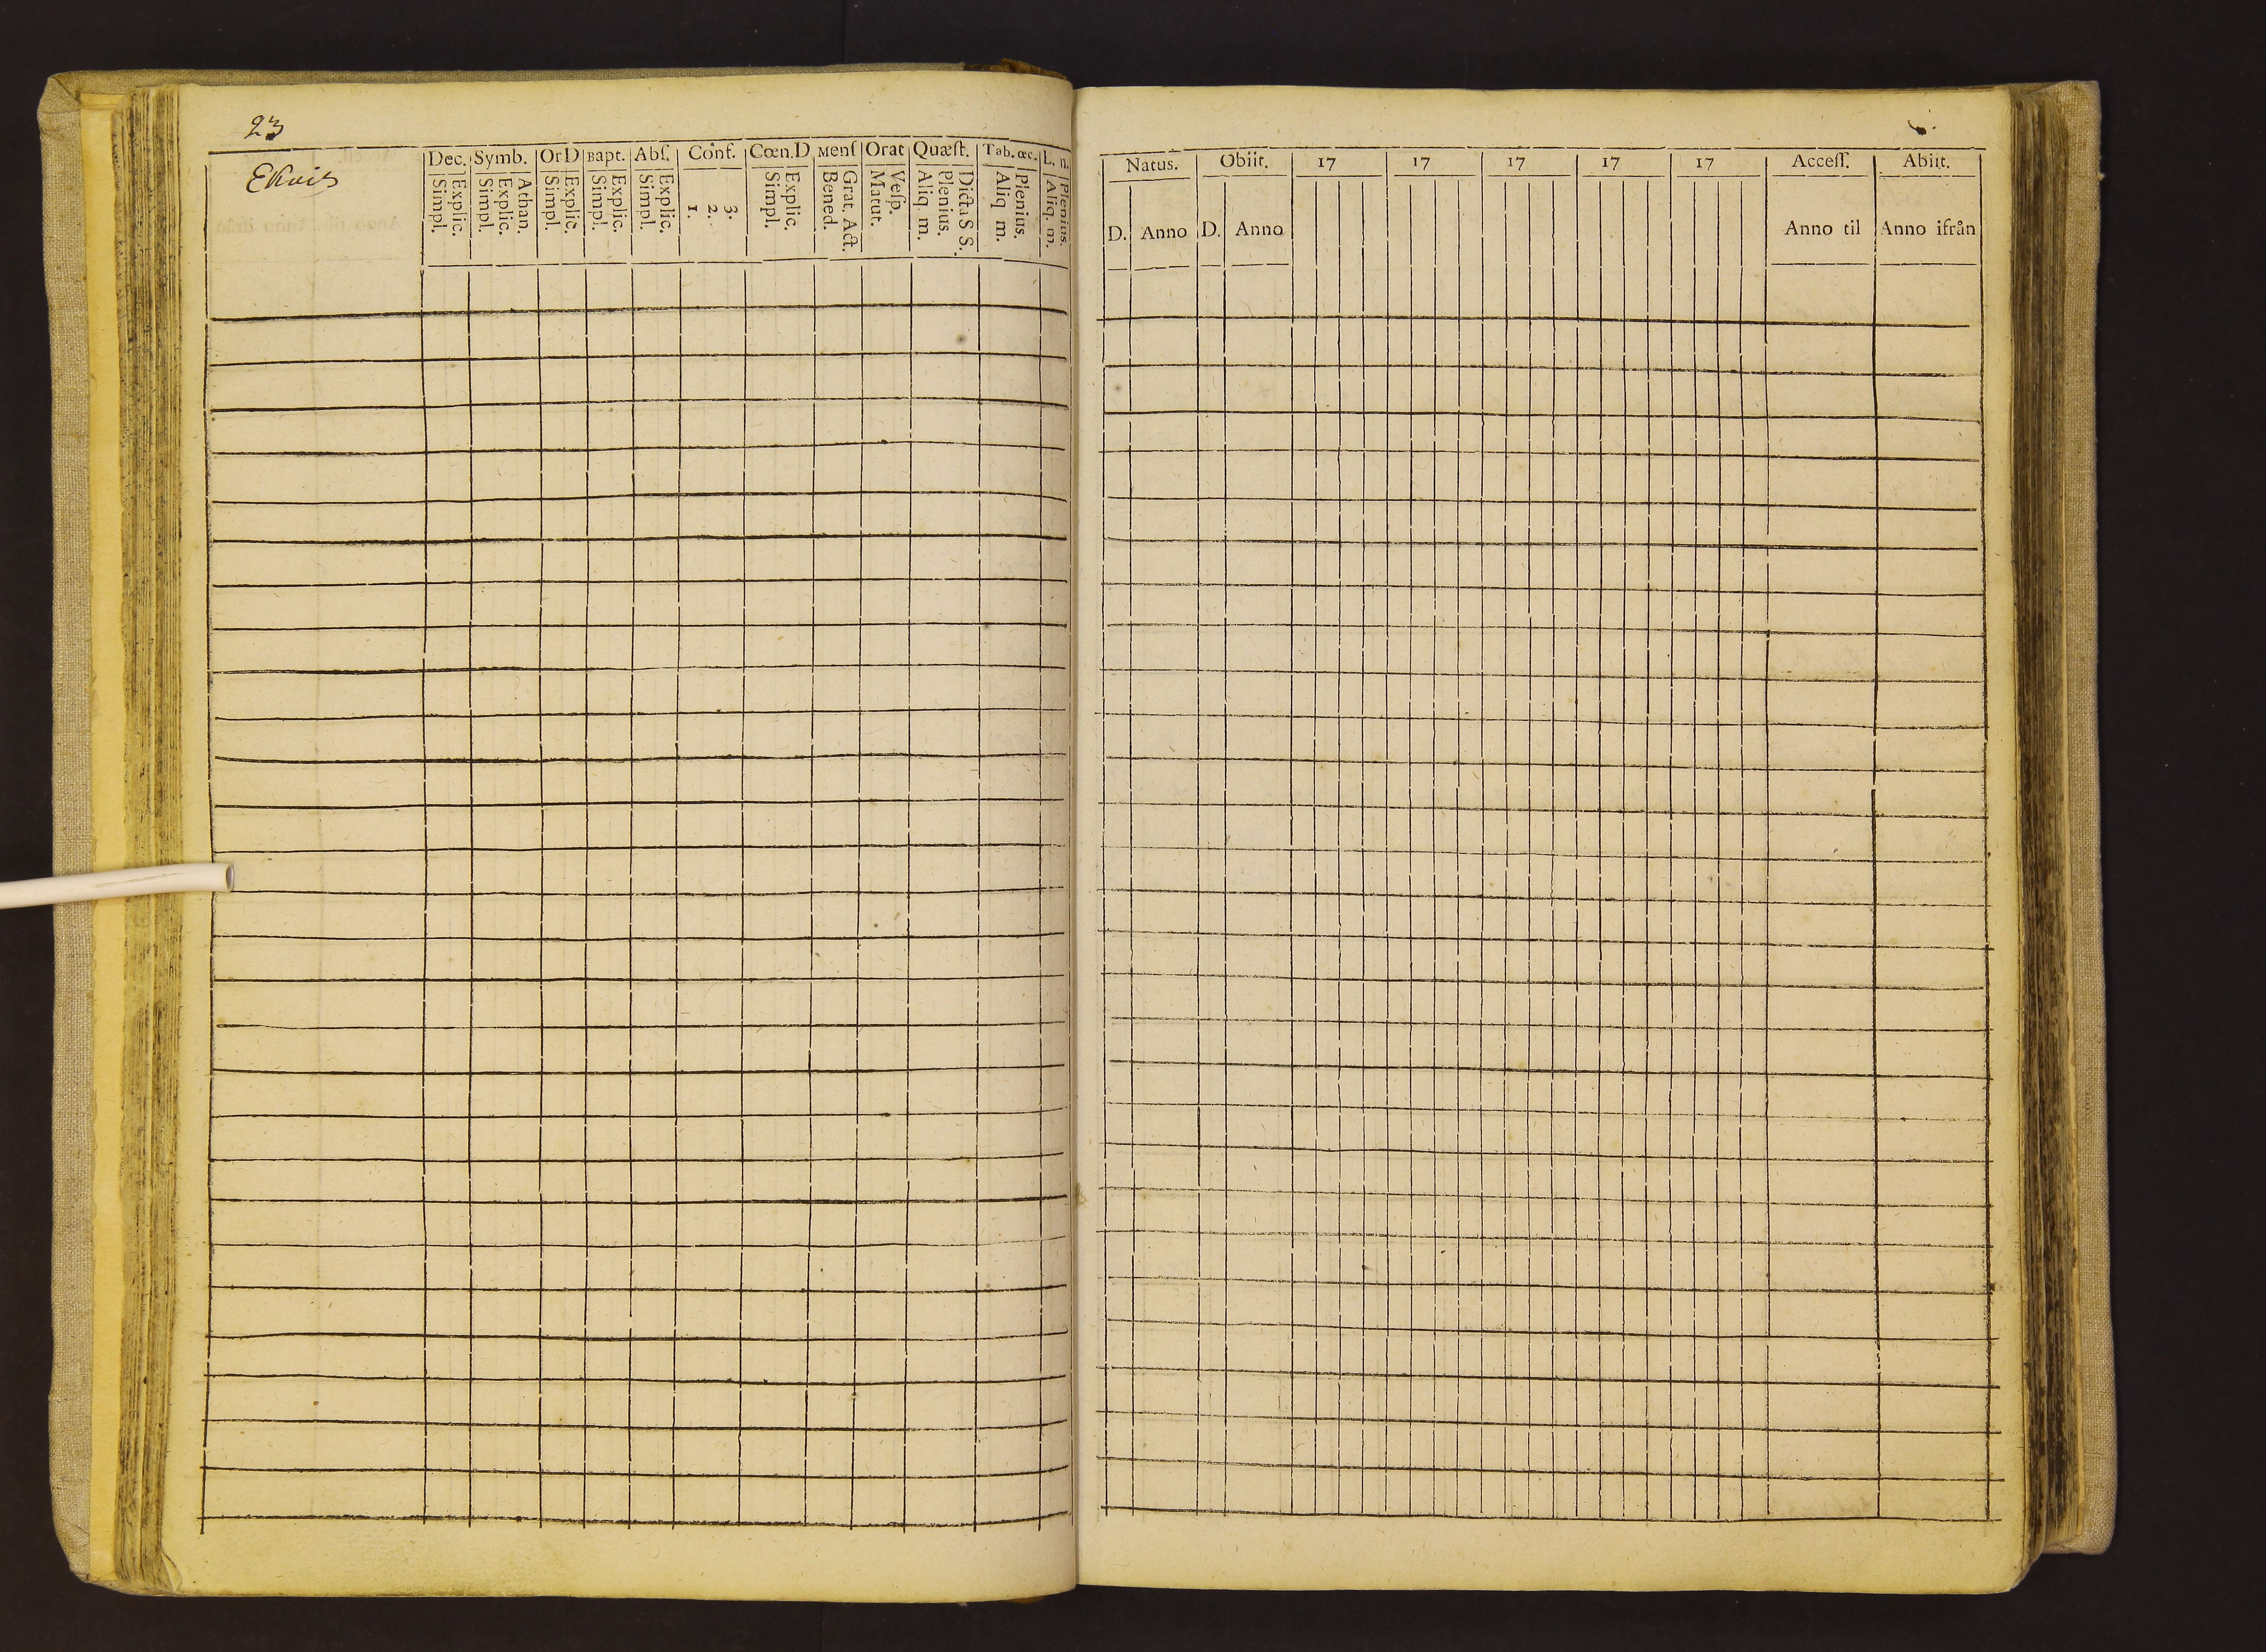 23
Ekvik
Dec. Symb. Or D Bapt. Abſ. Conf. Cœn.D Menſ Orat Quæſt. Tab. œc. L. n.
Simpl. Explic. Simpl. Explic. Athan. Simpl. Explic. Simpl. Explic. Simpl. Explic. 1. 2. 3. Simpl. Explic. Bened. Grat. Act. Matut. Veſp. Aliq. m. Plenius. Dicta S S. Aliq. m. Plenius. Aliq. m. Plenius.
Natus. Obiit. 17 17 17 17 17 Acceſſ. Abiit.
D. Anno D. Anno Anno til Anno ifrån